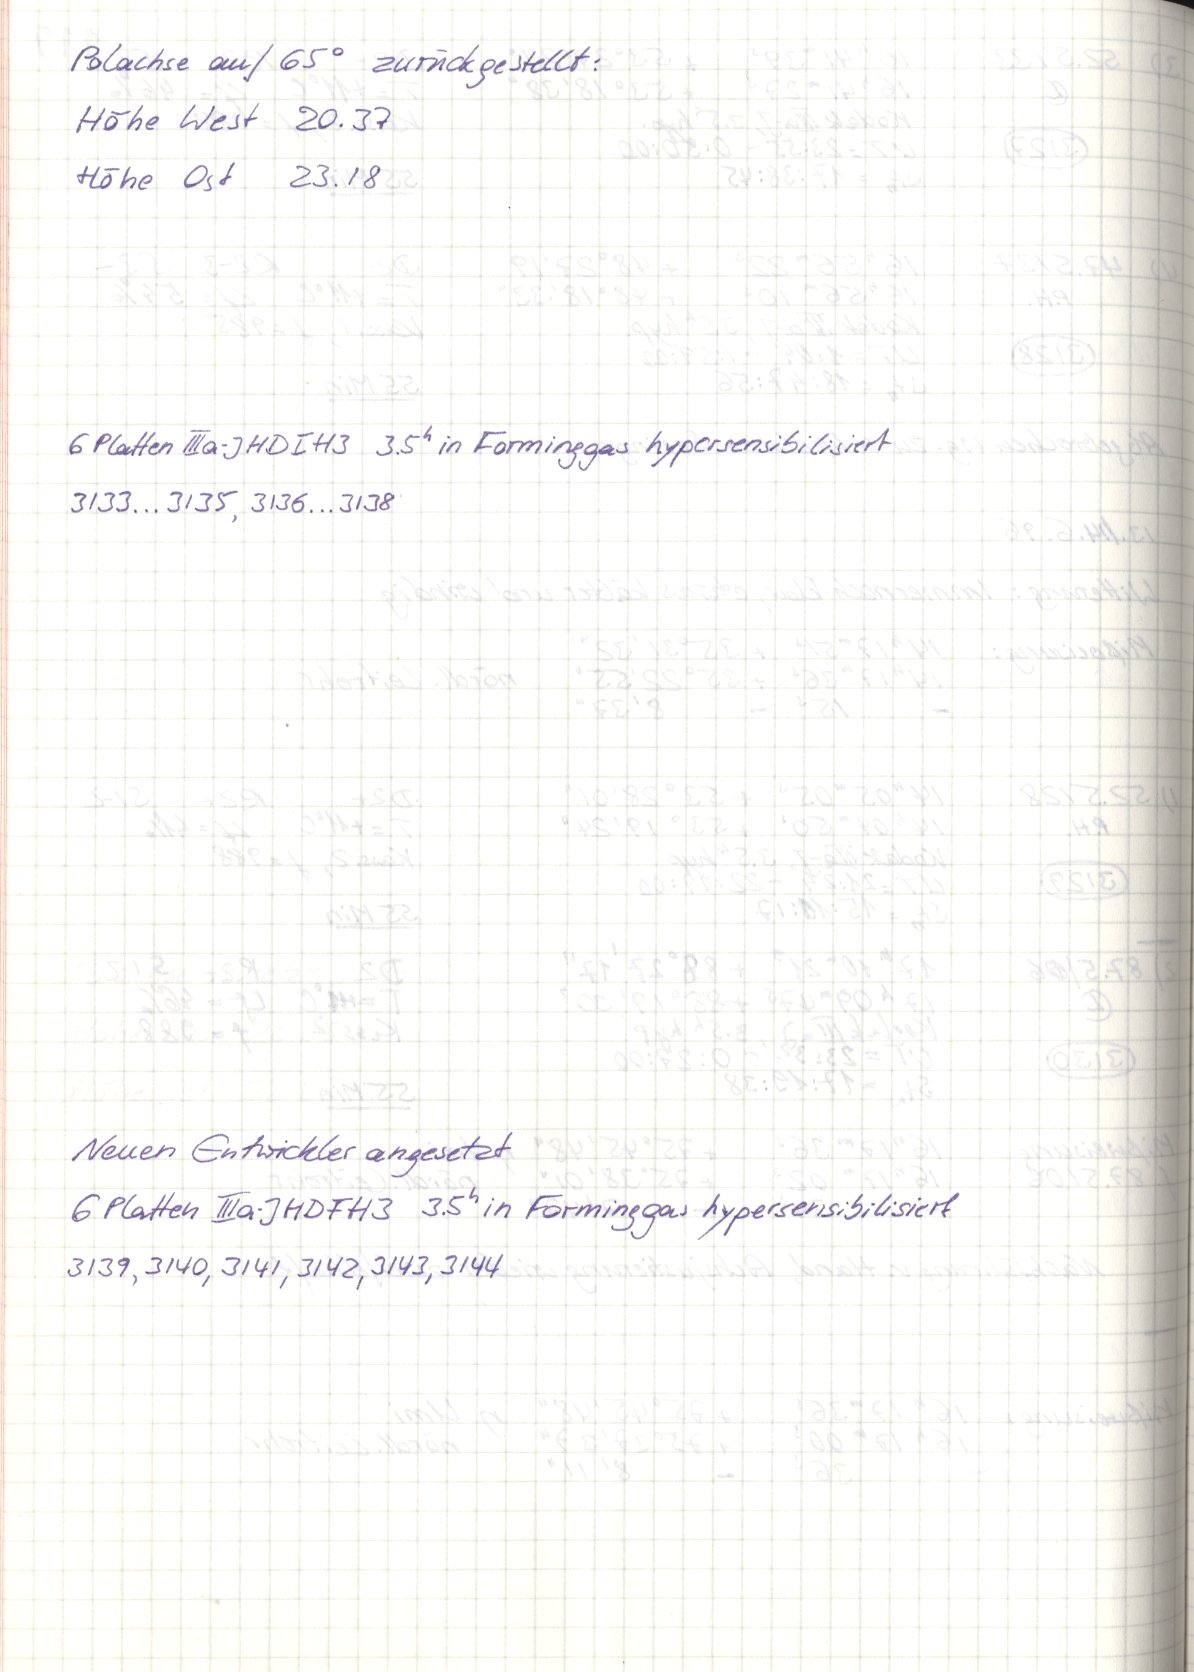 Polachse auf 65° zurückgestellt:
Höhe West 20.37
Höhe Ost 23.18
6 Platten IIIa-J HDIH3 3.5ʰ in Forminggas hypersensibilisiert
3133...3135, 3136...3138
Neuen Entwickler angesetzt
6 Platten IIIa-J HDFH3 3.5ʰ in Forminggas hypersensibilisiert
3139, 3140, 3141, 3142, 3143, 3144